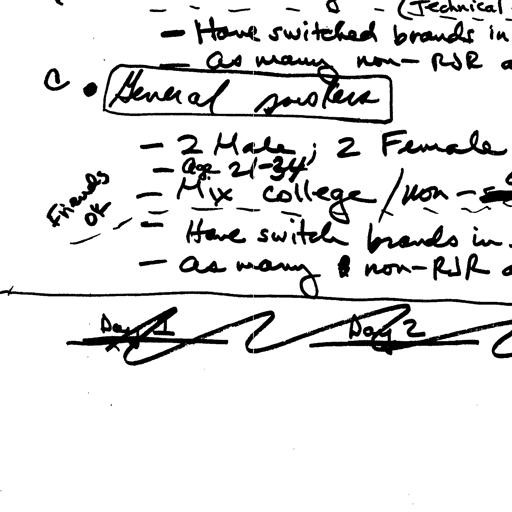 (Technical
- Have switched brands in
- as many non-RJR
C • General switchers
- 2 Male, 2 Female
- Age 21-34
- Mix college/non-
Friends OK
- Have switch brands in
- as many non-RJR
Day 1 Day 2